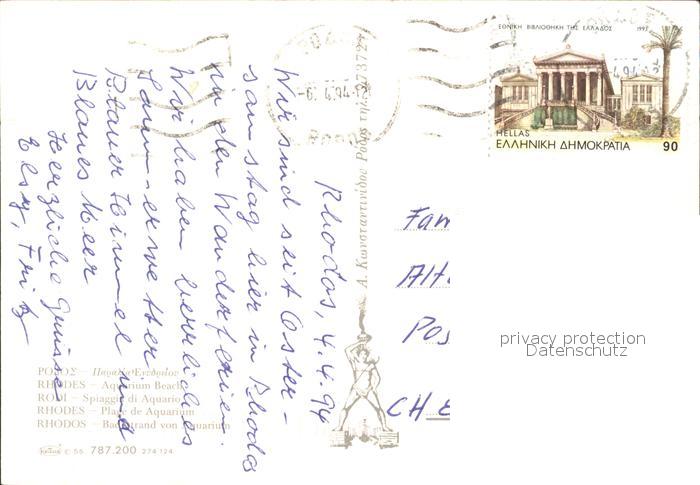 Rhodos, 4.4.94
Wir sind seit Oster-
samstag hier in Rhodos
in den Wanderferien.
Wir haben herrliches
Sommerwetter
Blauer Himmel und
Blaues Meer
Herzliche Grüsse
Elsy, Fritz
ΡΟΔΟΣ – Παραλία Ενυδρείου
RHODES – Aquarium Beach
RODI – Spiaggia di Aquario
RHODES – Plage de Aquarium
RHODOS – Badestrand von Aquarium
C 55 787.200 274 124
Α. Κωνσταντινίδος Ρόδος τηλ.
-6. 4.94
ΕΘΝΙΚΗ ΒΙΒΛΙΟΘΗΚΗ ΤΗΣ ΕΛΛΑΔΟΣ 1993
HELLAS
ΕΛΛΗΝΙΚΗ ΔΗΜΟΚΡΑΤΙΑ 90
Fam
Alt
Pos
CH-
privacy protection
Datenschutz